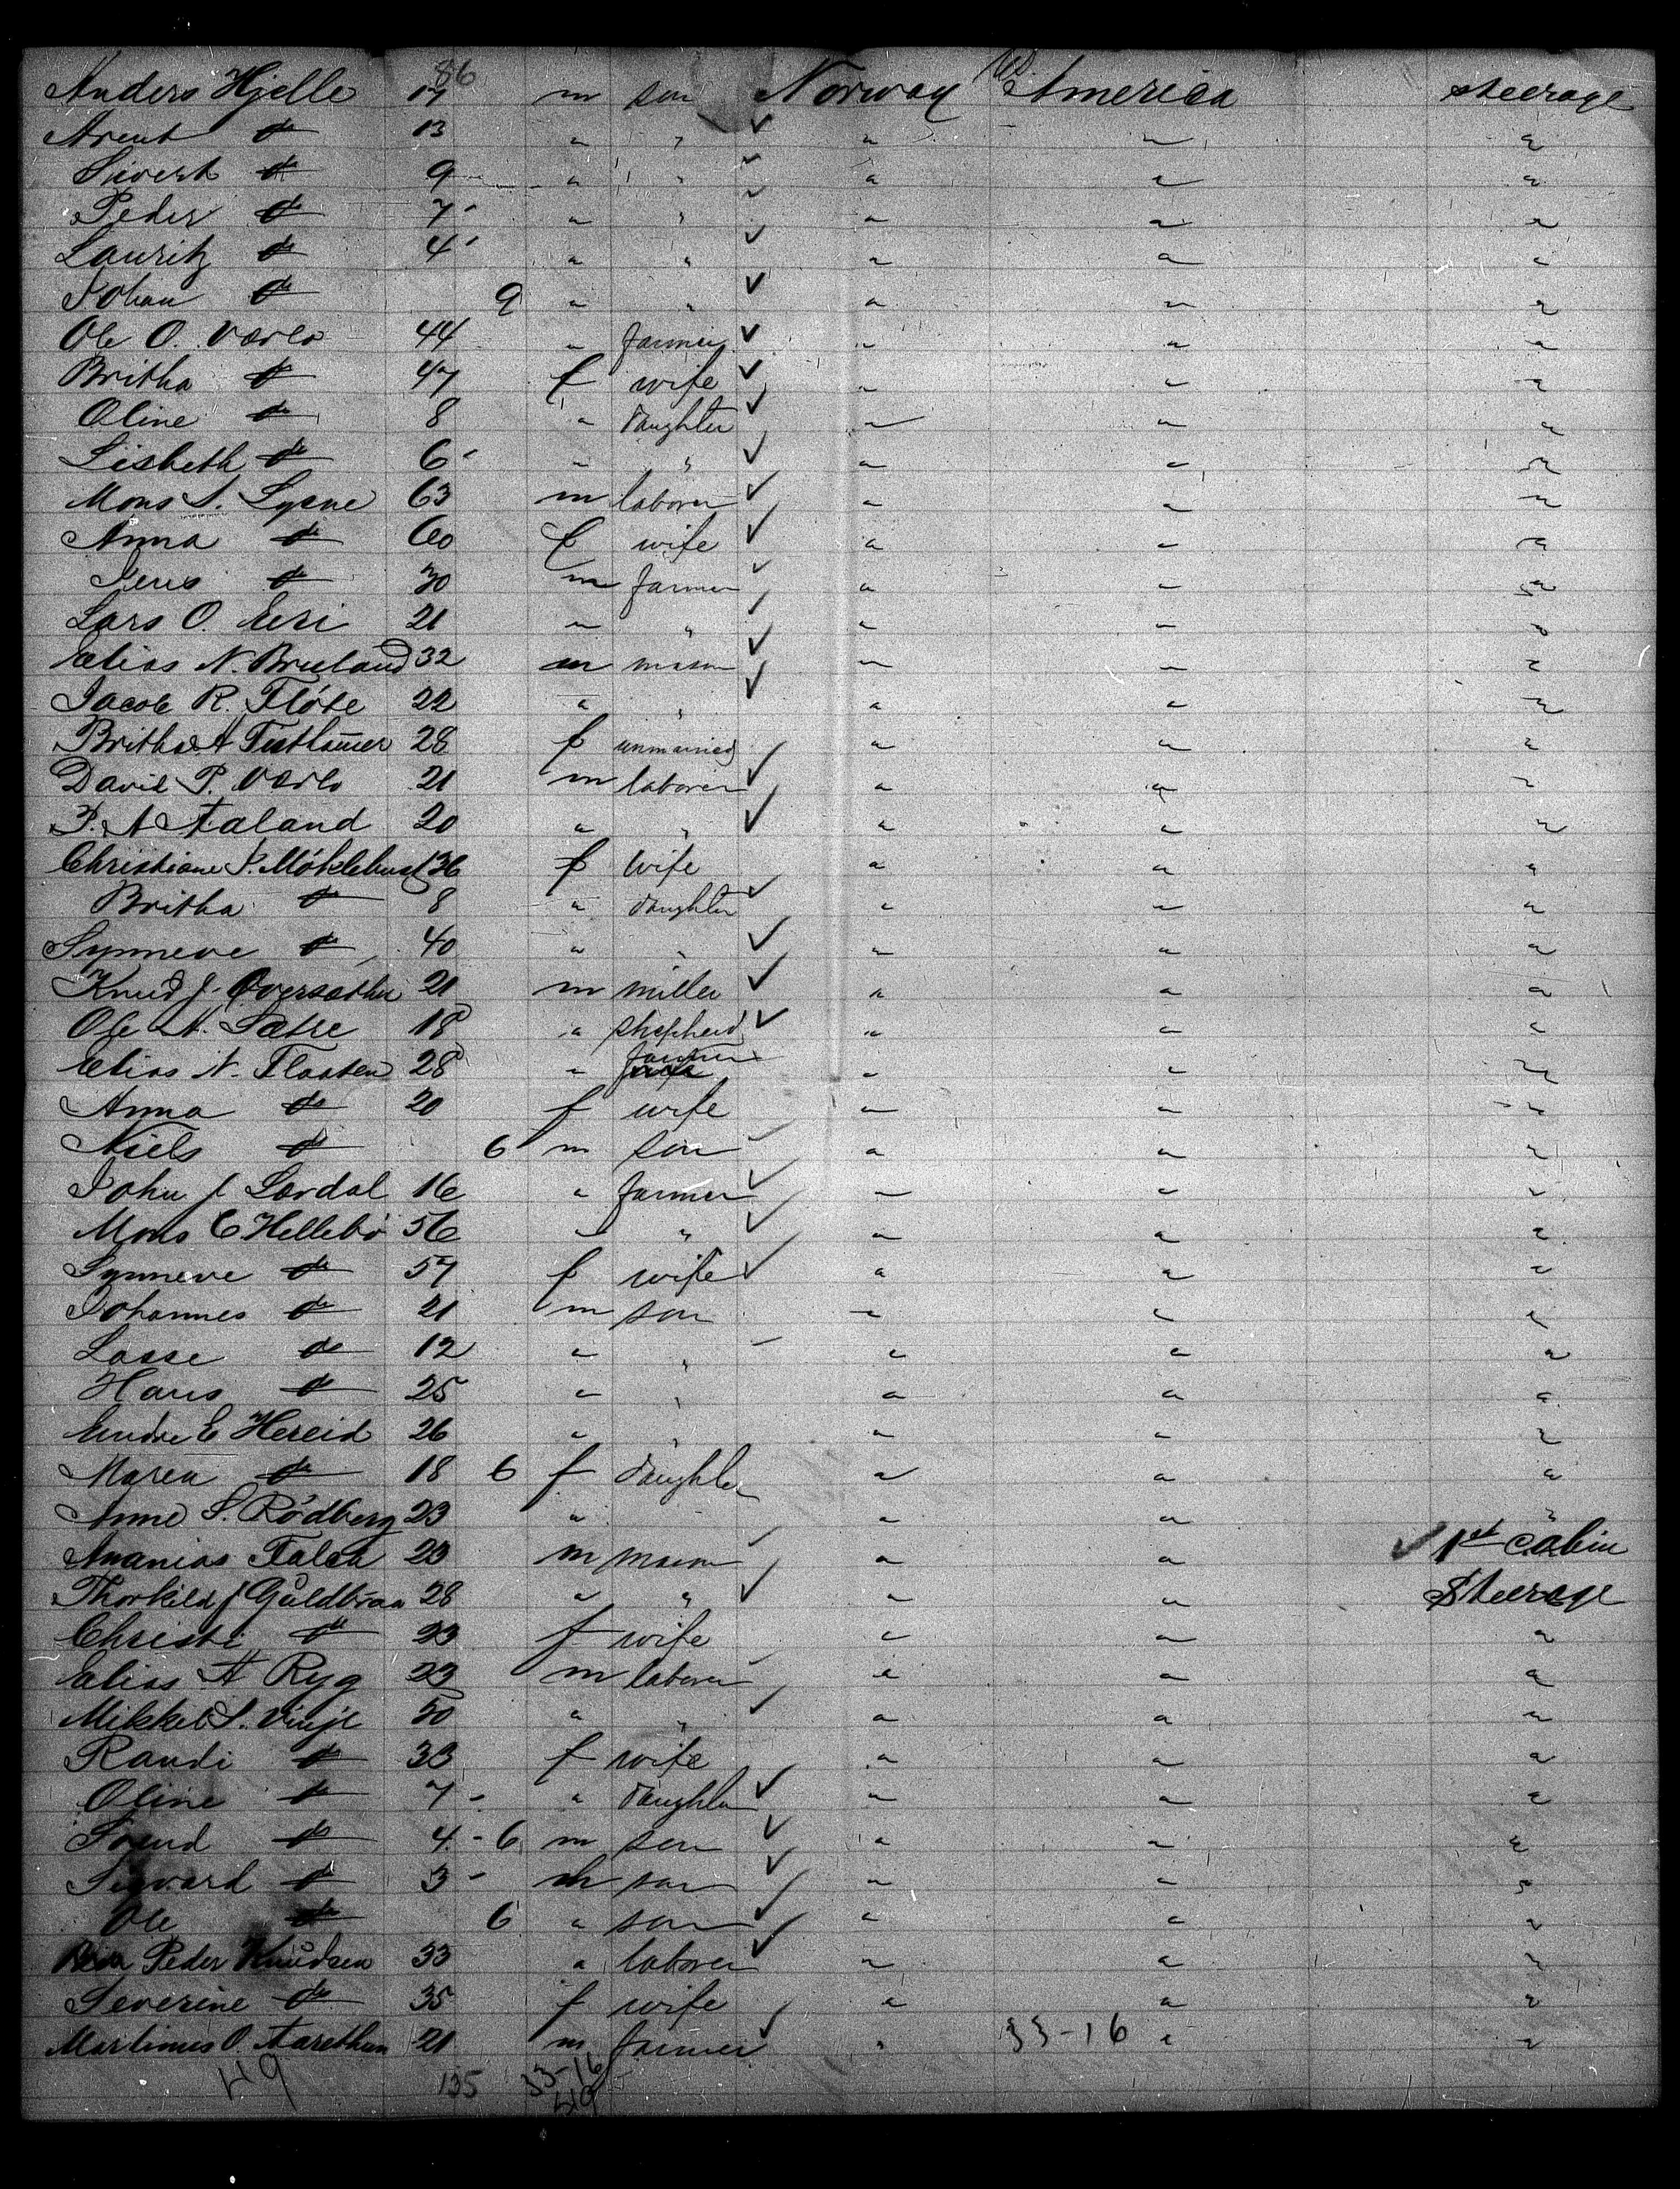 86
Anders Hjelle 17 m son Norway US America steerage
Arent do 13 " " " " "
Sivert do 9 " " " " "
Peder do 7 " " " " "
Lauritz do 4 " " " " "
Johan do 9 " " " " "
Ole O. 44 " farmer " " "
Britha do 47 f wife " " "
Oline do 8 " daughter " " "
Lisbeth do 6 " " " " "
Mons S. Lysne 63 m laborer " " "
Anna do 60 f wife " " "
Jens do 30 m farmer " " "
Lars O. Eri 21 " " " " "
Elias N. Bruland 32 m mason " " "
Jacob R. Flöte 22 " " " " "
Britha A 28 f unmarried " " "
David P. 21 m laborer " " "
P. A Aaland 20 " " " " "
Christiane P. Möklebust 36 f wife " " "
Britha do 8 " daughter " " "
Synneve do 40 " " " " "
Knud J. 21 m miller " " "
Ole A. Sætre 18 " shepherd " " "
Elias N. Flaaten 28 " farmer " " "
Anna do 20 f wife " " "
Niels do 6 m son " " "
John J Lærdal 16 " farmer " " "
Mons C Hellebö 56 " " " " "
Synneve do 57 f wife " " "
Johannes do 21 m son " " "
Lasse do 12 " " " " "
Hans do 25 " " " " "
Endre E Hereid 26 " " " " "
Maren do 18 6 f daughter " " "
Anne S. Rödberg 23 " " " " "
Ananias 23 m mason " " 1st cabin
Thorkild J 28 " " " " Steerage
Christi do 23 f wife " " "
Elias A Ryg 23 m laborer " " "
Mikkel S. Vinje 30 " " " " "
Randi do 33 f wife " " "
Oline do 7 - " daughter " " "
Svend do 4 - 6 m son " " "
Sigvard do 3 - m son " " "
Ole do 6 " son " " "
Peder Knudsen 33 " laborer " " "
Severine do 35 f wife " " "
Martinus O. Aarethun 21 m farmer " 33-16 " "
49 135 33-16
49